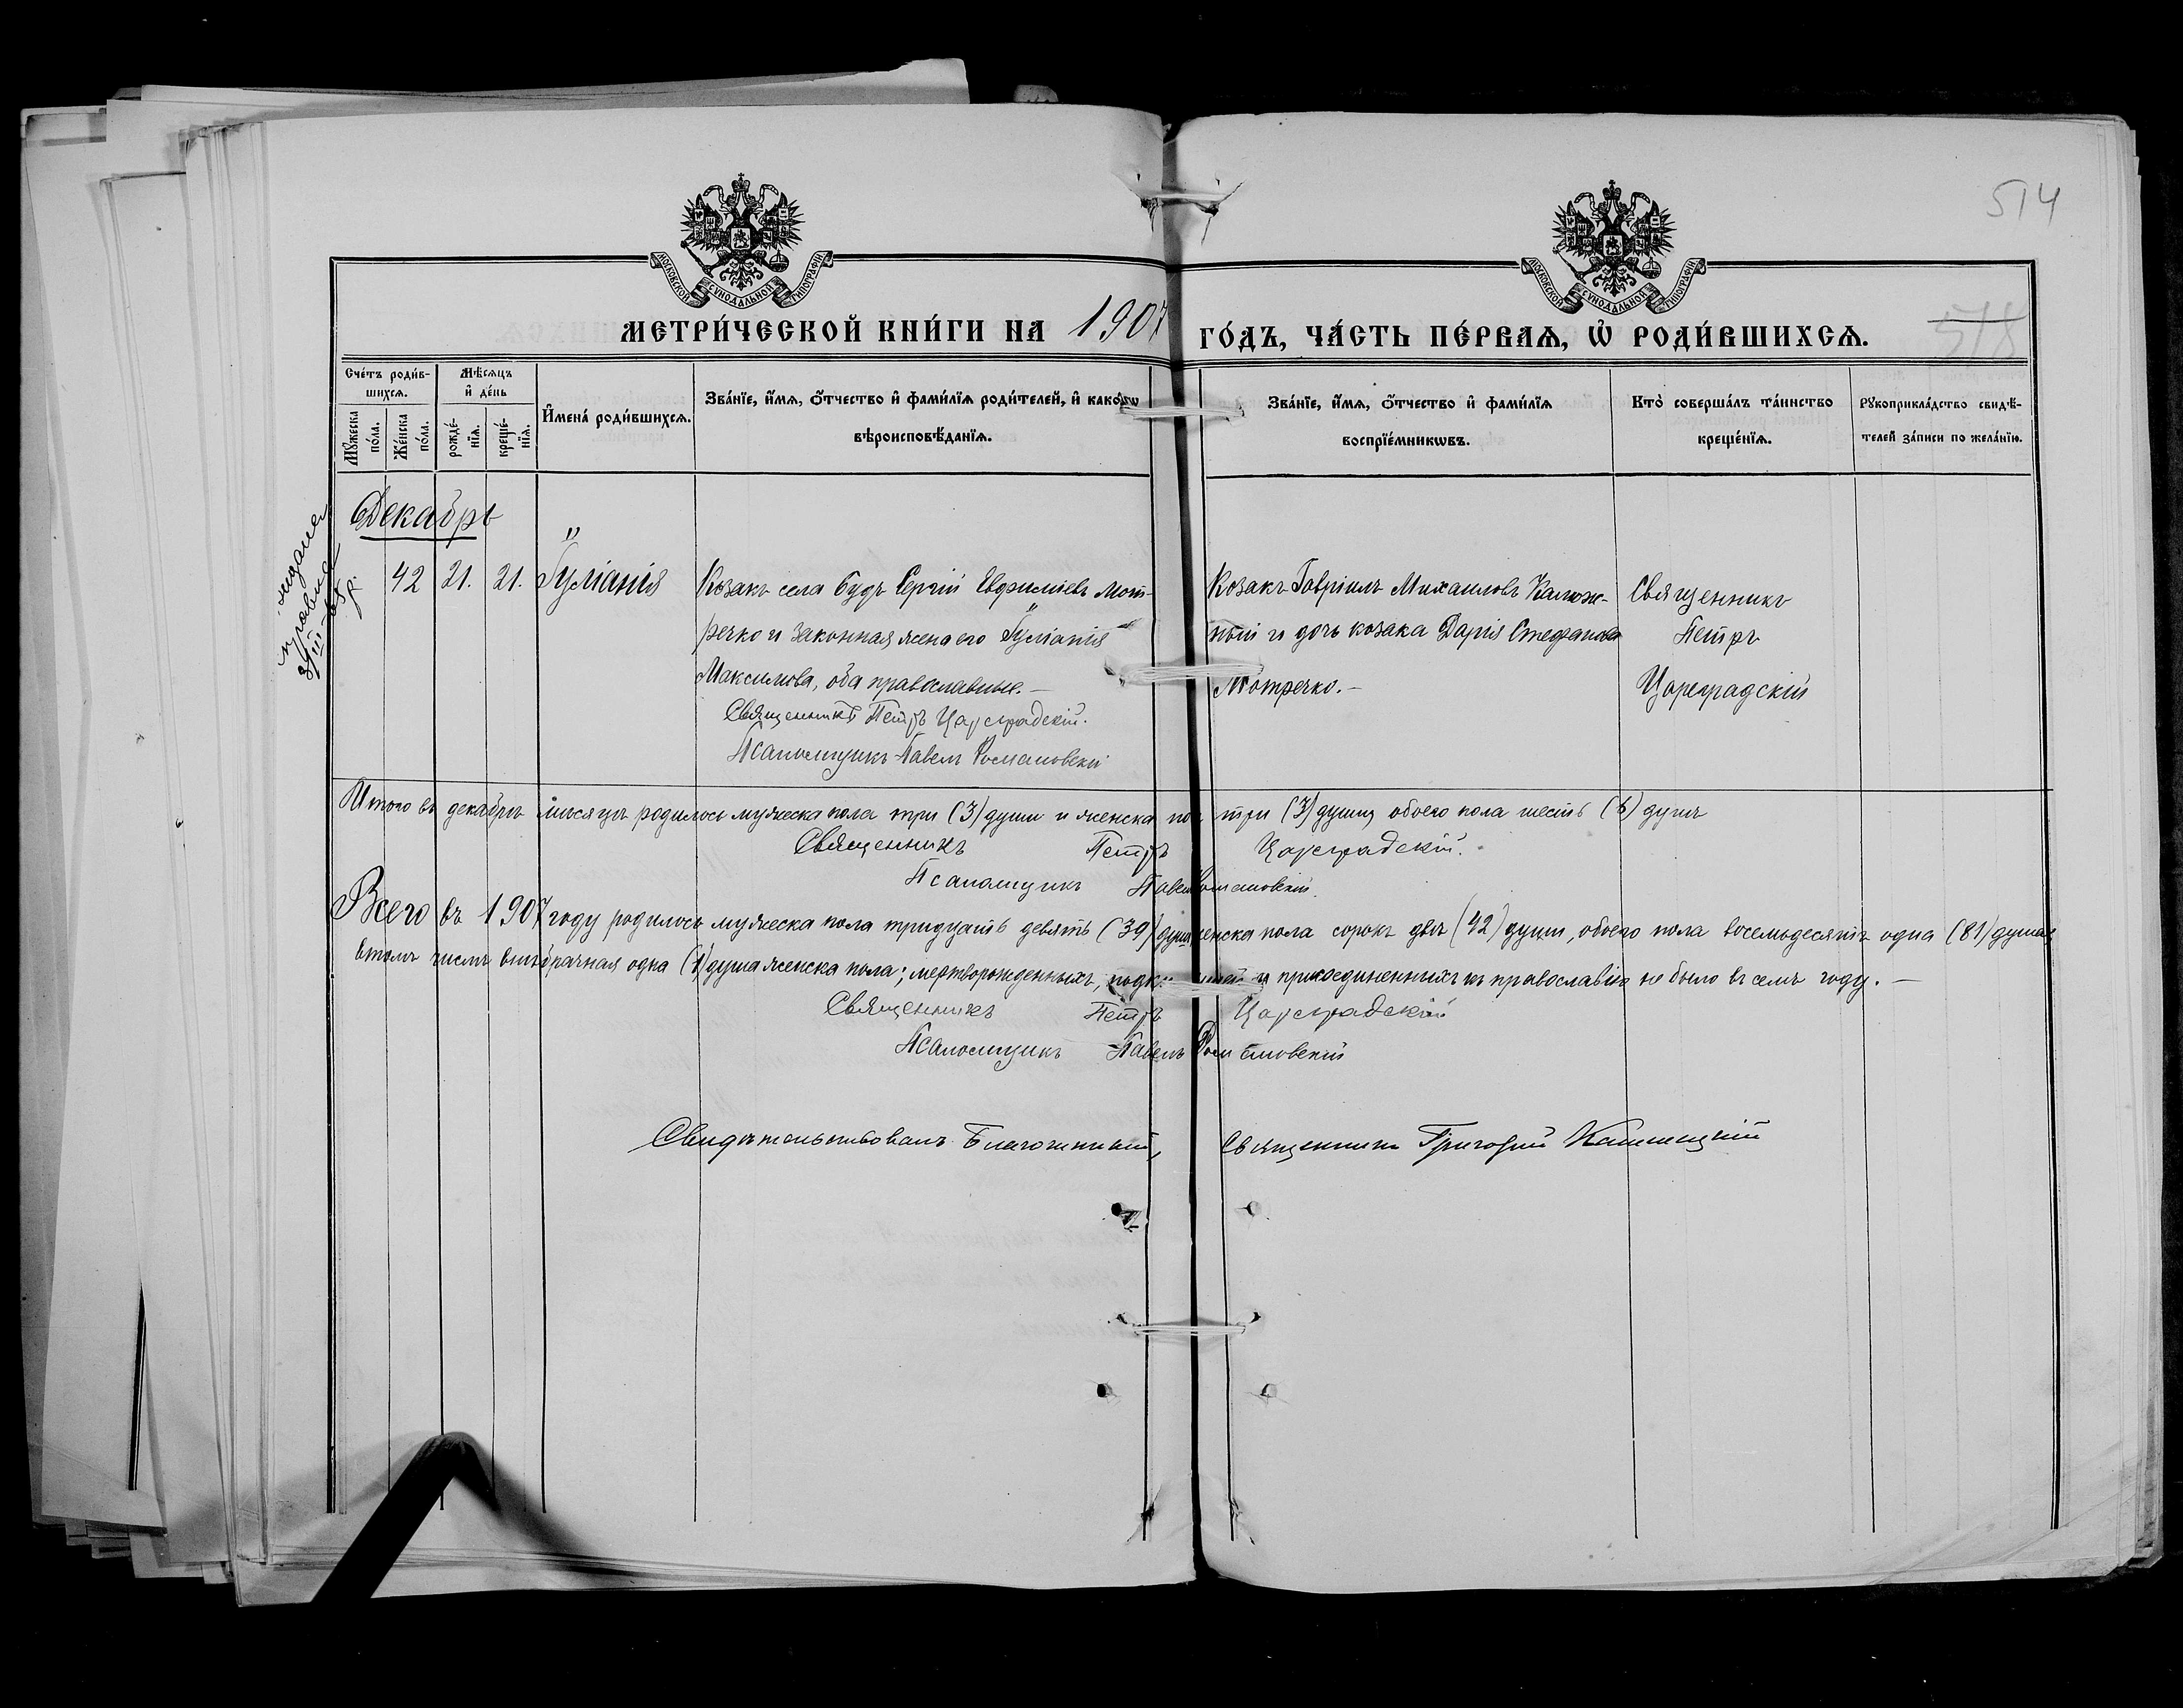 514
518
МОСКОВСКОЙ СѴНОДАЛЬНОЙ ТИПОГРАФІИ
МОСКОВСКОЙ СѴНОДАЛЬНОЙ ТИПОГРАФІИ
МЕТРИ́ЧЕСКОЙ КНИ́ГИ НА 1907 ГО́ДЪ, ЧА́СТЬ ПЕ́РВАѦ, Ѡ҆ РОДИ́ВШИХСѦ.
Счетъ роди́в-
шихсѧ.
Мꙋжеска по́ла.
Же́нска по́ла.
Мѣ́сѧцъ и҆ де́нь
рожде́-
нїѧ.
креще́-
нїѧ.
И҆мена̀ роди́вшихсѧ.
Зва́нїе, и҆́мѧ, ѻ҆́тчество и҆ фами́лїѧ роди́телей, и҆ како́гѡ
вѣроисповѣ́данїѧ.
Зва́нїе, и҆́мѧ, ѻ҆́тчество и҆ фами́лїѧ
воспрїе́мникѡвъ.
Кто̀ соверша́лъ та́инство
креще́нїѧ.
Рꙋкоприкла́дство свидѣ́-
телей за́писи по жела́нїю.
Декабрь
42 21. 21. Іуліанія
Козакъ села Будъ Сергій Евфиміевъ Мот-
речко и законная жена его Іуліанія
Максимова, оба православные. —
Священникъ Петръ Цареградскій.
Псаломщикъ Павелъ Романовскій
Козакъ Гавріилъ Михаиловъ Калюж-
ный и дочь козака Дарія Стефанова
Мотречко. —
Священникъ
Петръ
Цареградскій
Итого въ декабрѣ мѣсяцѣ родилось мужеска пола три (3) души и женска пола три (3) души, обоего пола шесть (6) душъ
Священникъ Петръ Цареградскій.
Псаломщикъ Павелъ Романовскій.
Всего въ 1907 году родилось мужеска пола тридцать девять (39) душъ женска пола сорокъ двѣ (42) души, обоего пола восемьдесятъ одна (81) душа,
въ томъ числѣ внѣбрачная одна (1) душа женска пола; мертворожденныхъ, и присоединенныхъ къ православію не было въ семъ году. —
Священникъ Петръ Цареградскій
Псаломщикъ Павелъ Романовскій
Свидѣтельствовалъ Благочинный, Священникъ Григорій